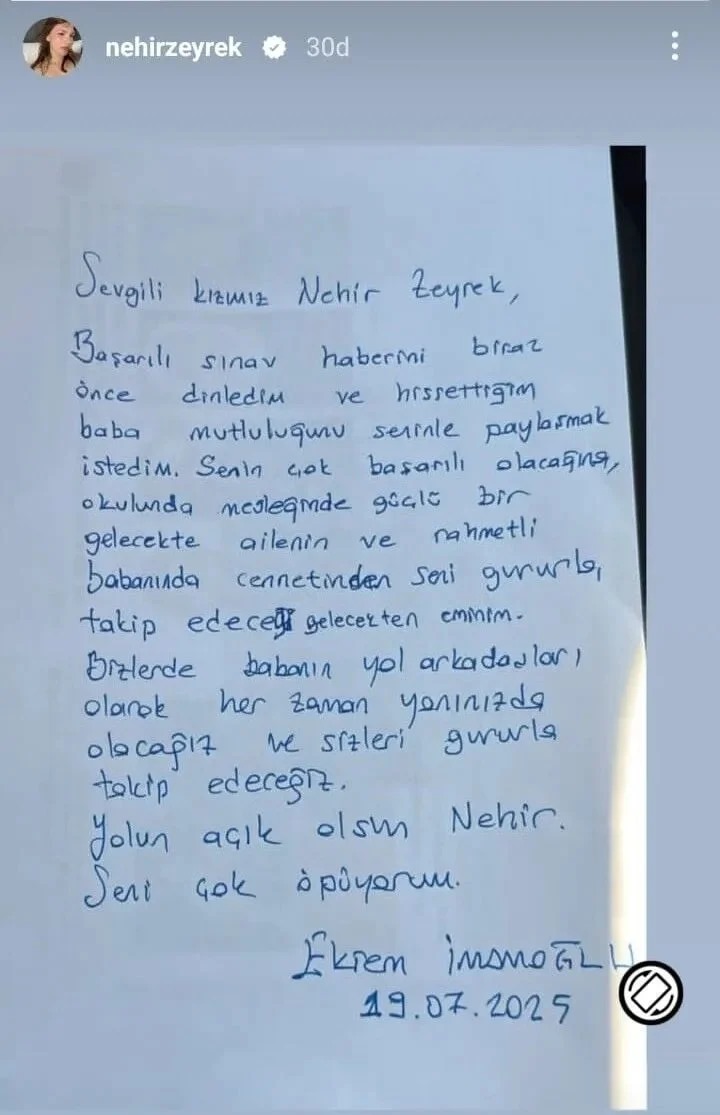 nehirzeyrek 30d
Sevgili kızımız Nehir Zeyrek,
Başarılı sınav haberini biraz
önce dinledim ve hissettiğim
baba mutluluğunu seninle paylaşmak
istedim. Senin çok başarılı olacağına,
okulunda mesleğinde güçlü bir
gelecekte ailenin ve rahmetli
babanında cennetinden seni gururla,
takip edeceği gelecekten eminim.
Bizlerde babanın yol arkadaşları
olarak her zaman yanınızda
olacağız ve sizleri gururla
takip edeceğiz.
Yolun açık olsun Nehir.
Seni çok öpüyorum.
Ekrem İmamoĞLU
19.07.2025